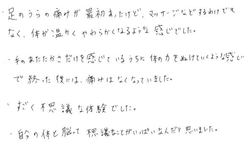 ・足のうらの痛みが最初あったけど、マッサージなどするわけでも
なく、体が温かくやわらかくなるような感じでした。
・手のあたたかさだけを感じているうちに体の力をぬけていくような感じ
で終った後には、痛みはなくなっていました。
・すごく不思議な体験でした。
・自分の体と脳って不思議なことがいっぱいなんだと思いました。